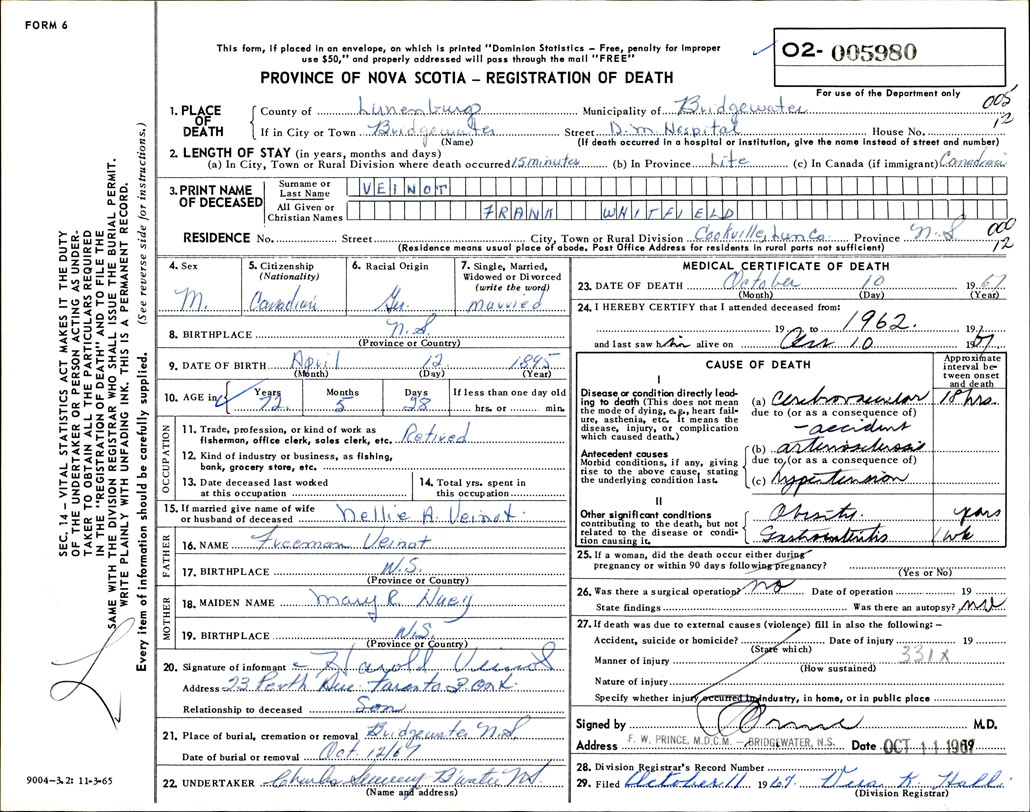 FORM 6
This form, if placed in an envelope, on which is printed "Dominion Statistics – Free, penalty for improper
use $50," and properly addressed will pass through the mail "FREE"
PROVINCE OF NOVA SCOTIA – REGISTRATION OF DEATH
02- 005980
For use of the Department only
005
12
1. PLACE OF DEATH
County of Lunenburg Municipality of Bridgewater
If in City or Town Bridgewater Street D.M. Hospital House No.
(Name) (If death occurred in a hospital or institution, give the name instead of street and number)
2. LENGTH OF STAY (in years, months and days)
(a) In City, Town or Rural Division where death occurred 15 minutes (b) In Province Life (c) In Canada (if immigrant) Canadian
3. PRINT NAME OF DECEASED
Surname or Last Name VEINOT
All Given or Christian Names FRANK WHITFIELD
RESIDENCE No. Street City, Town or Rural Division Cookville, Lun Co. Province N.S
000
12
(Residence means usual place of abode. Post Office Address for residents in rural parts not sufficient)
4. Sex M.
5. Citizenship (Nationality) Canadian
6. Racial Origin Ger.
7. Single, Married, Widowed or Divorced (write the word) married
8. BIRTHPLACE N.S
(Province or Country)
9. DATE OF BIRTH April 12 1895
(Month) (Day) (Year)
10. AGE in Years 72 Months 5 Days 28 If less than one day old hrs. or min.
OCCUPATION
11. Trade, profession, or kind of work as fisherman, office clerk, sales clerk, etc. Retired
12. Kind of industry or business, as fishing, bank, grocery store, etc.
13. Date deceased last worked at this occupation
14. Total yrs. spent in this occupation
15. If married give name of wife or husband of deceased Nellie A. Veinot
FATHER
16. NAME Freeman Veinot
17. BIRTHPLACE N.S.
(Province or Country)
MOTHER
18. MAIDEN NAME Mary R. Huey
19. BIRTHPLACE N.S.
(Province or Country)
20. Signature of informant Harold Veinot
Address 23 Perth Ave Toronto 3 Ont.
Relationship to deceased Son
21. Place of burial, cremation or removal Bridgewater N.S
Date of burial or removal Oct. 12/67
22. UNDERTAKER Charles Sweeny B'water N.S.
(Name and address)
MEDICAL CERTIFICATE OF DEATH
23. DATE OF DEATH October 10 1967
(Month) (Day) (Year)
24. I HEREBY CERTIFY that I attended deceased from:
19 to 1962. 19
and last saw him alive on 10 1967
CAUSE OF DEATH
Approximate interval between onset and death
I
Disease or condition directly leading to death (This does not mean the mode of dying, e.g., heart failure, asthenia, etc. It means the disease, injury, or complication which caused death.)
(a) Cerebrovascular 18 hrs.
due to (or as a consequence of)
- accident
Antecedent causes
Morbid conditions, if any, giving rise to the above cause, stating the underlying condition last.
(b) arteriosclerosis
due to (or as a consequence of)
(c) hypertension
II
Other significant conditions
contributing to the death, but not related to the disease or condition causing it.
Obesity. years
Gastroenteritis 1 wk
25. If a woman, did the death occur either during pregnancy or within 90 days following pregnancy?
(Yes or No)
26. Was there a surgical operation? no Date of operation 19
State findings Was there an autopsy?
27. If death was due to external causes (violence) fill in also the following: –
Accident, suicide or homicide? Date of injury 19
(State which)
331X
Manner of injury
(How sustained)
Nature of injury
Specify whether injury occurred in industry, in home, or in public place
Signed by Prince M.D.
Address F. W. PRINCE, M.D.C.M. – BRIDGEWATER, N.S. Date OCT 11 1967
28. Division Registrar's Record Number
29. Filed October 11 1967 Vera K.
(Division Registrar)
SEC. 14 – VITAL STATISTICS ACT MAKES IT THE DUTY
OF THE UNDERTAKER OR PERSON ACTING AS UNDER-
TAKER TO OBTAIN ALL THE PARTICULARS REQUIRED
IN THE "REGISTRATION OF DEATH" AND TO FILE THE
SAME WITH THE DIVISION REGISTRAR WHO SHALL ISSUE THE BURIAL PERMIT.
WRITE PLAINLY WITH UNFADING INK. THIS IS A PERMANENT RECORD.
Every item of information should be carefully supplied. (See reverse side for instructions.)
9004–3.2: 11-3-65